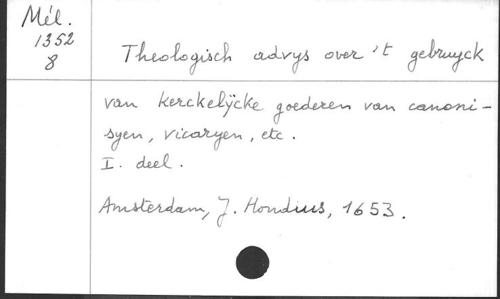 Mél.
1352
8
Theologisch advys over 't gebruyck
van kerckelÿcke goederen van canoni-
syen, vicaryen, etc.
I. deel.
Amsterdam, J. Hondius, 1653.